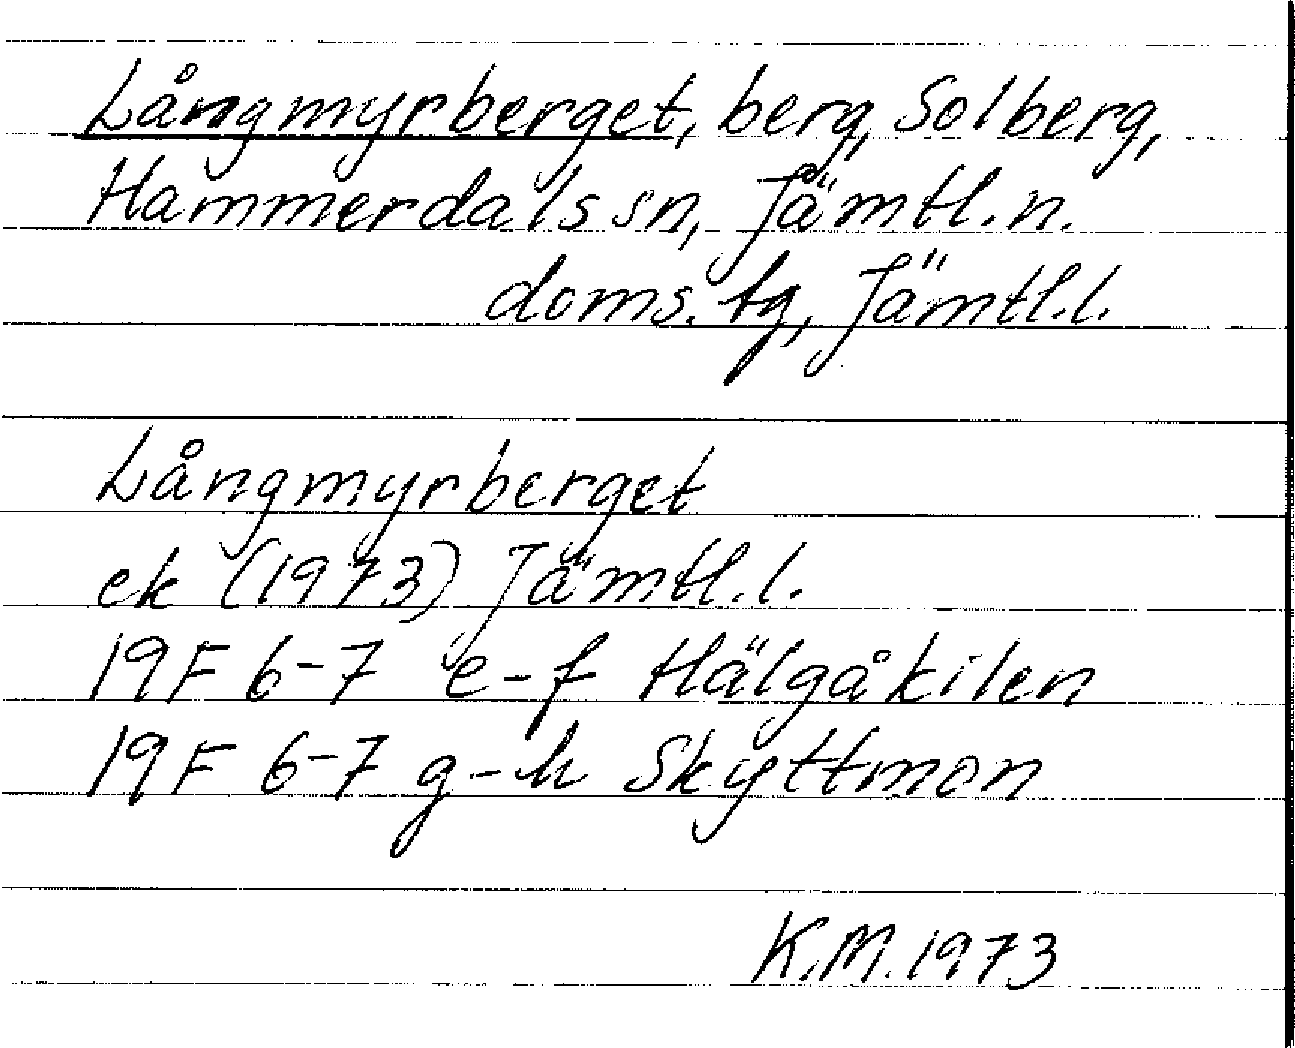 Långmyrberget, berg, Solberg,
Hammerdals sn, Jämtl. n.
doms. tg, Jämtl. l.
Långmyrberget
ek (1973) Jämtl. l.
19F 6-7 e-f Hälgåkilen
19F 6-7 g-h Skyttmon
K.M. 1973